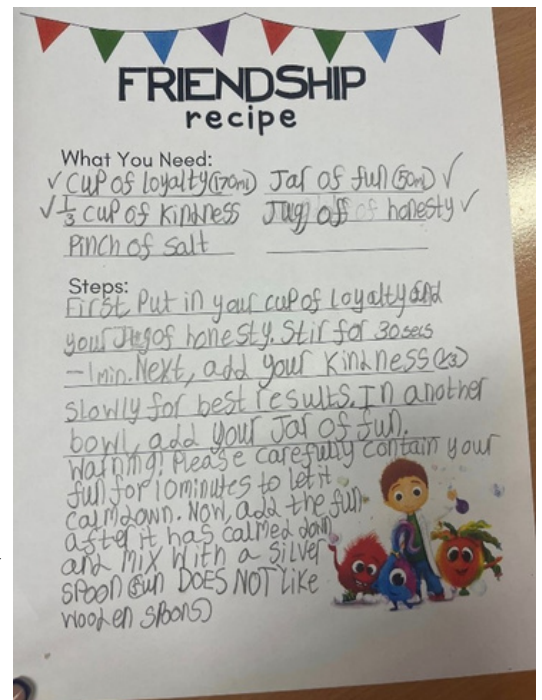 FRIENDSHIP
recipe
What You Need:
✓ Cup of loyalty (170ml) Jar of fun (50ml) ✓
✓ 1/3 cup of Kindness Jug off of honesty ✓
Pinch of salt
Steps:
First Put in your cup of Loyalty and
your Jug of honesty. Stir for 30secs
-1min. Next, add your Kindness (1/3)
slowly for best results. In another
bowl, add your Jar of fun.
Warning! Please carefully contain your
fun for 10minutes to let it
calmdown. Now, add the fun
after it has calmed down
and mix with a silver
spoon (fun DOES NOT Like
wooden spoons)